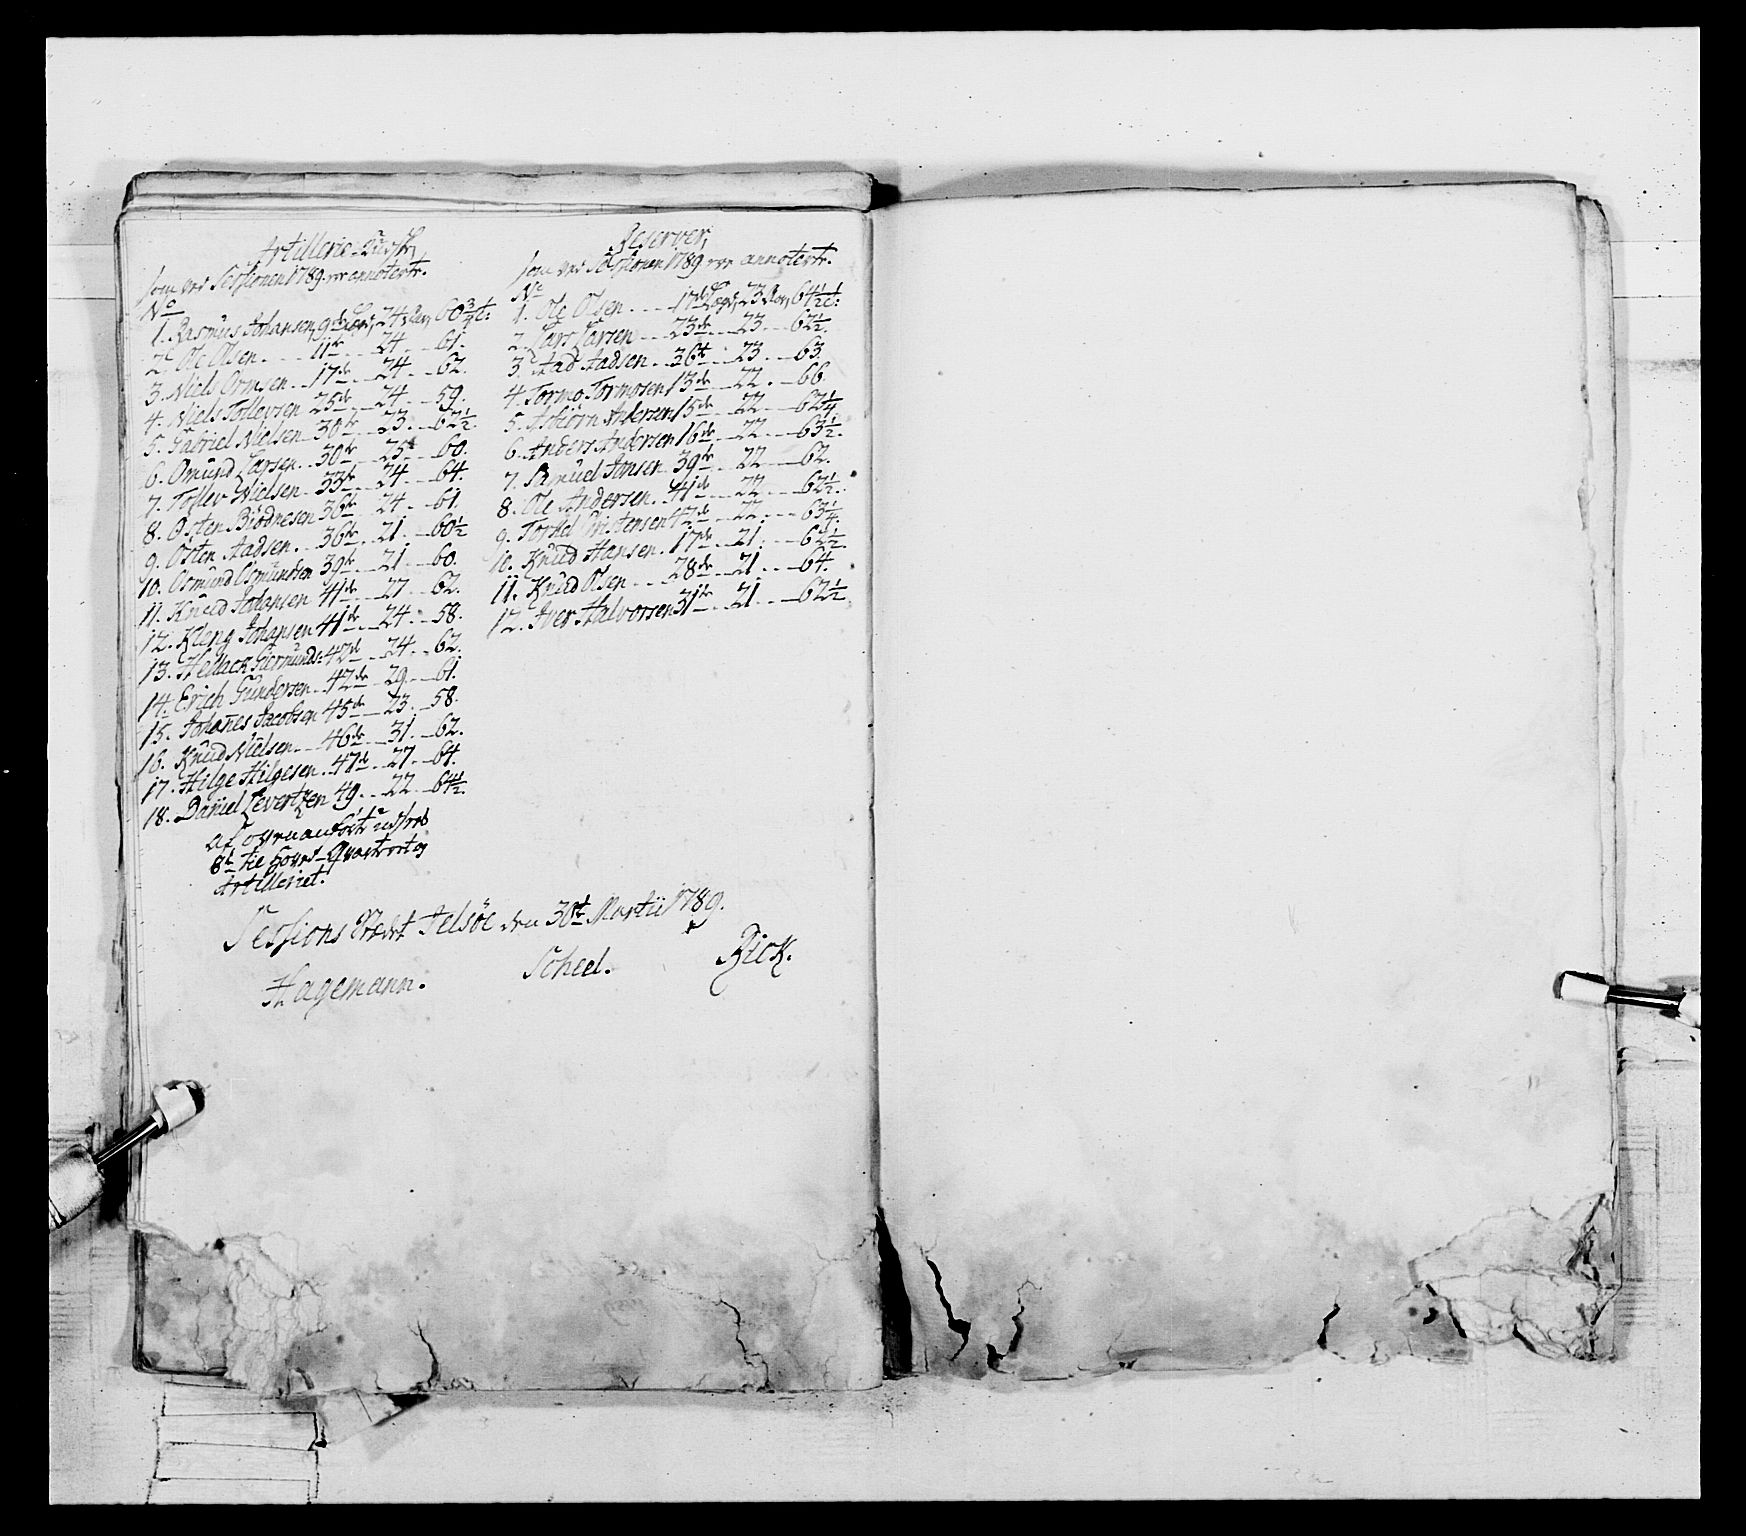 Artillerie
som ved Sessionen 1789 er annotert.
No
1. Rasmus Johansen, 9de Lægd, 24 Aar, 60 3/4 t:
2. Ole Olsen. 11te 24 61.
3. Niels Ormsen. 17de 24 62.
4. Niels Tollevsen 25de 24 59.
5. Gabriel Nielsen 30te 23. 62 1/2.
6. Omund Larsen. 30te 25 60.
7. Tollev Nielsen. 33te 24 64.
8. Østen Biödnesen 36te 24. 61.
9. Östen Aadsen. 36te 21. 60 1/2
10. Osmund Osmundsen 39te 21. 60.
11. Knud Johansen 41de 27 62.
12. Kleng Johansen 41de 24. 58.
13. Hellack Giermunds: 42de 24. 62.
14. Erich Gundersen. 42de 29. 61.
15. Johanes Jacobsen 45de 23. 58.
16. Knud Nielsen. 46de 31. 62.
17. Hilge Hilgesen. 47de 27. 64.
18. Daniel Evertsen 49. 22 64 1/2.
af ovenanførte
8te til
Artilleriet.
Reserver,
som ved Sessionen 1789 er annotert.
No
1. Ole Olsen. 17de Lægd, 23 Aar, 64 1/2 t:
2. Lars Larsen 23de 23 62 1/2.
3. Aad Aadsen. 36te 23. 63.
4. Tormo Tormosen 13de 22. 66.
5. Asbiörn Andersen 15de 22 62 1/4
6. Anders Andersen 16de 22 63 1/2.
7. Samuel Jansen 39te 22 62.
8. Ole Andersen. 41de 22 62 1/2.
9. Torkel Cristensen 42de 22. 63 1/4.
10. Knud Hansen. 17de 21. 62 1/2.
11. Knud Olsen 28de 21. 64.
12. Iver Halvorsen 31te 21. 62 1/2
Sessions Rædet Jelsöe den 30te Martii 1789.
Hagemann. Scheel. Rick.